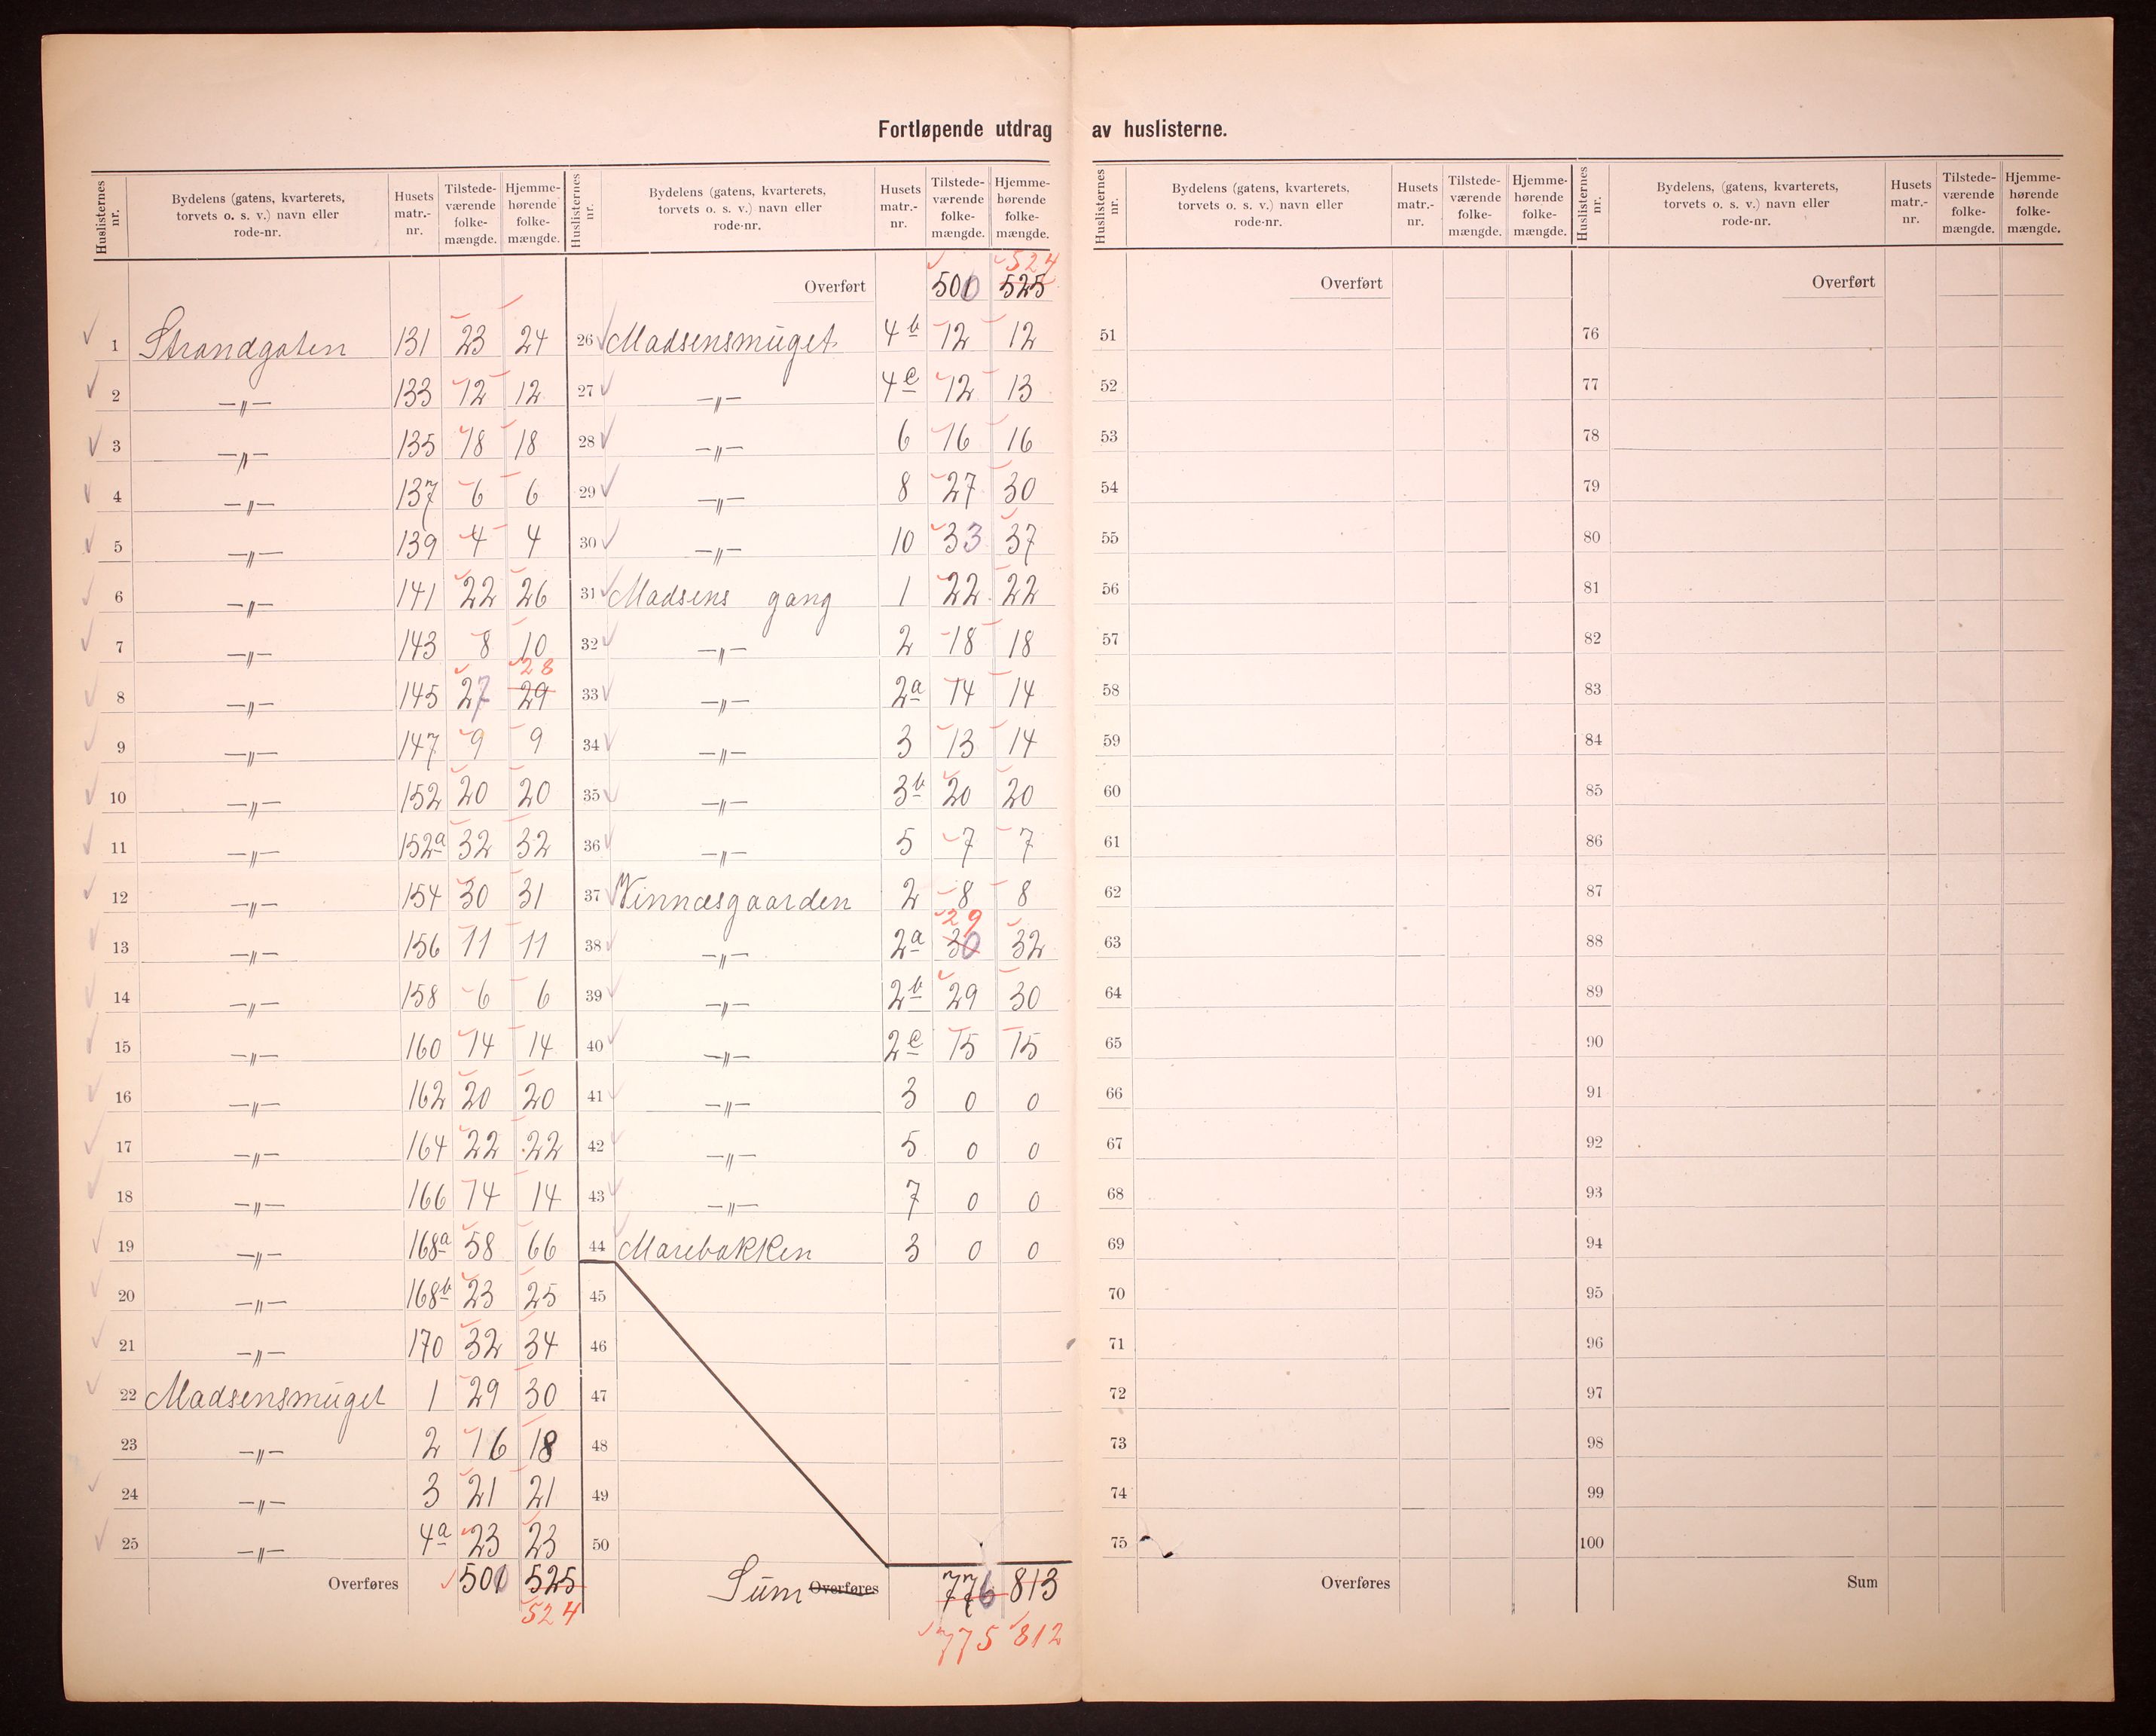 Fortløpende utdrag av huslisterne.
Huslisternes nr. | Bydelens (gatens, kvarterets, torvets o. s. v.) navn eller rode-nr. | Husets matr.-nr. | Tilstede-værende folke-mængde. | Hjemme-hørende folke-mængde.
1 Strandgaten 131 23 24
2 —〃— 133 12 12
3 —〃— 135 18 18
4 —〃— 137 6 6
5 —〃— 139 4 4
6 —〃— 141 22 26
7 —〃— 143 8 10
8 —〃— 145 27 29 28
9 —〃— 147 9 9
10 —〃— 152 20 20
11 —〃— 152a 32 32
12 —〃— 154 30 31
13 —〃— 156 11 11
14 —〃— 158 6 6
15 —〃— 160 14 14
16 —〃— 162 20 20
17 —〃— 164 22 22
18 —〃— 166 14 14
19 —〃— 168a 58 66
20 —〃— 168b 23 25
21 —〃— 170 32 34
22 Madsensmuget 1 29 30
23 —〃— 2 16 18
24 —〃— 3 21 21
25 —〃— 4a 23 23
Overføres 500 525
524
Huslisternes nr. | Bydelens (gatens, kvarterets, torvets o. s. v.) navn eller rode-nr. | Husets matr.-nr. | Tilstede-værende folke-mængde. | Hjemme-hørende folke-mængde.
524
Overført 500 525
26 Madsensmuget 4b 12 12
27 —〃— 4c 12 13
28 —〃— 6 16 16
29 —〃— 8 27 30
30 —〃— 10 33 37
31 Madsens gang 1 22 22
32 —〃— 2 18 18
33 —〃— 2a 14 14
34 —〃— 3 13 14
35 —〃— 3b 20 20
36 —〃— 5 7 7
37 Vinnæsgaarden 2 8 8
38 —〃— 2a 30 29 32
39 —〃— 2b 29 30
40 —〃— 2c 15 15
41 —〃— 3 0 0
42 —〃— 5 0 0
43 —〃— 7 0 0
44 Marebakken 3 0 0
45
46
47
48
49
50
Sum Overføres 776 813
775 812
Huslisternes nr. | Bydelens (gatens, kvarterets, torvets o. s. v.) navn eller rode-nr. | Husets matr.-nr. | Tilstede-værende folke-mængde. | Hjemme-hørende folke-mængde.
Overført
51
52
53
54
55
56
57
58
59
60
61
62
63
64
65
66
67
68
69
70
71
72
73
74
75
Overføres
Huslisternes nr. | Bydelens, (gatens, kvarterets, torvets o. s. v.) navn eller rode-nr. | Husets matr.-nr. | Tilstede-værende folke-mængde. | Hjemme-hørende folke-mængde.
Overført
76
77
78
79
80
81
82
83
84
85
86
87
88
89
90
91
92
93
94
95
96
97
98
99
100
Sum